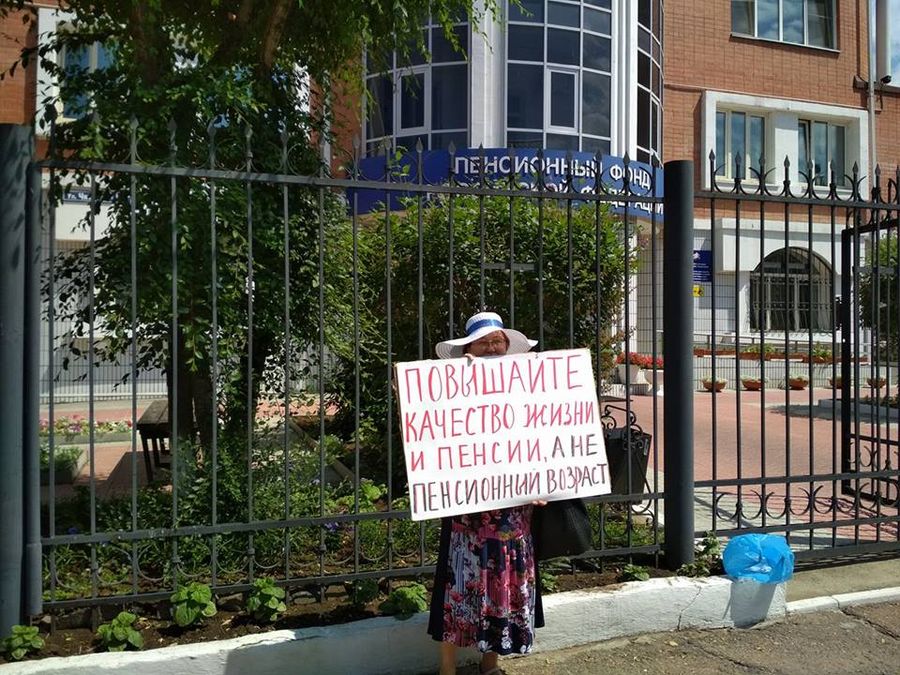 ПЕНСИОННЫЙ ФОНД
ФЕДЕРАЦИИ
ПОВЫШАЙТЕ
КАЧЕСТВО ЖИЗНИ
И ПЕНСИИ, А НЕ
ПЕНСИОННИЙ ВОЗРАСТ